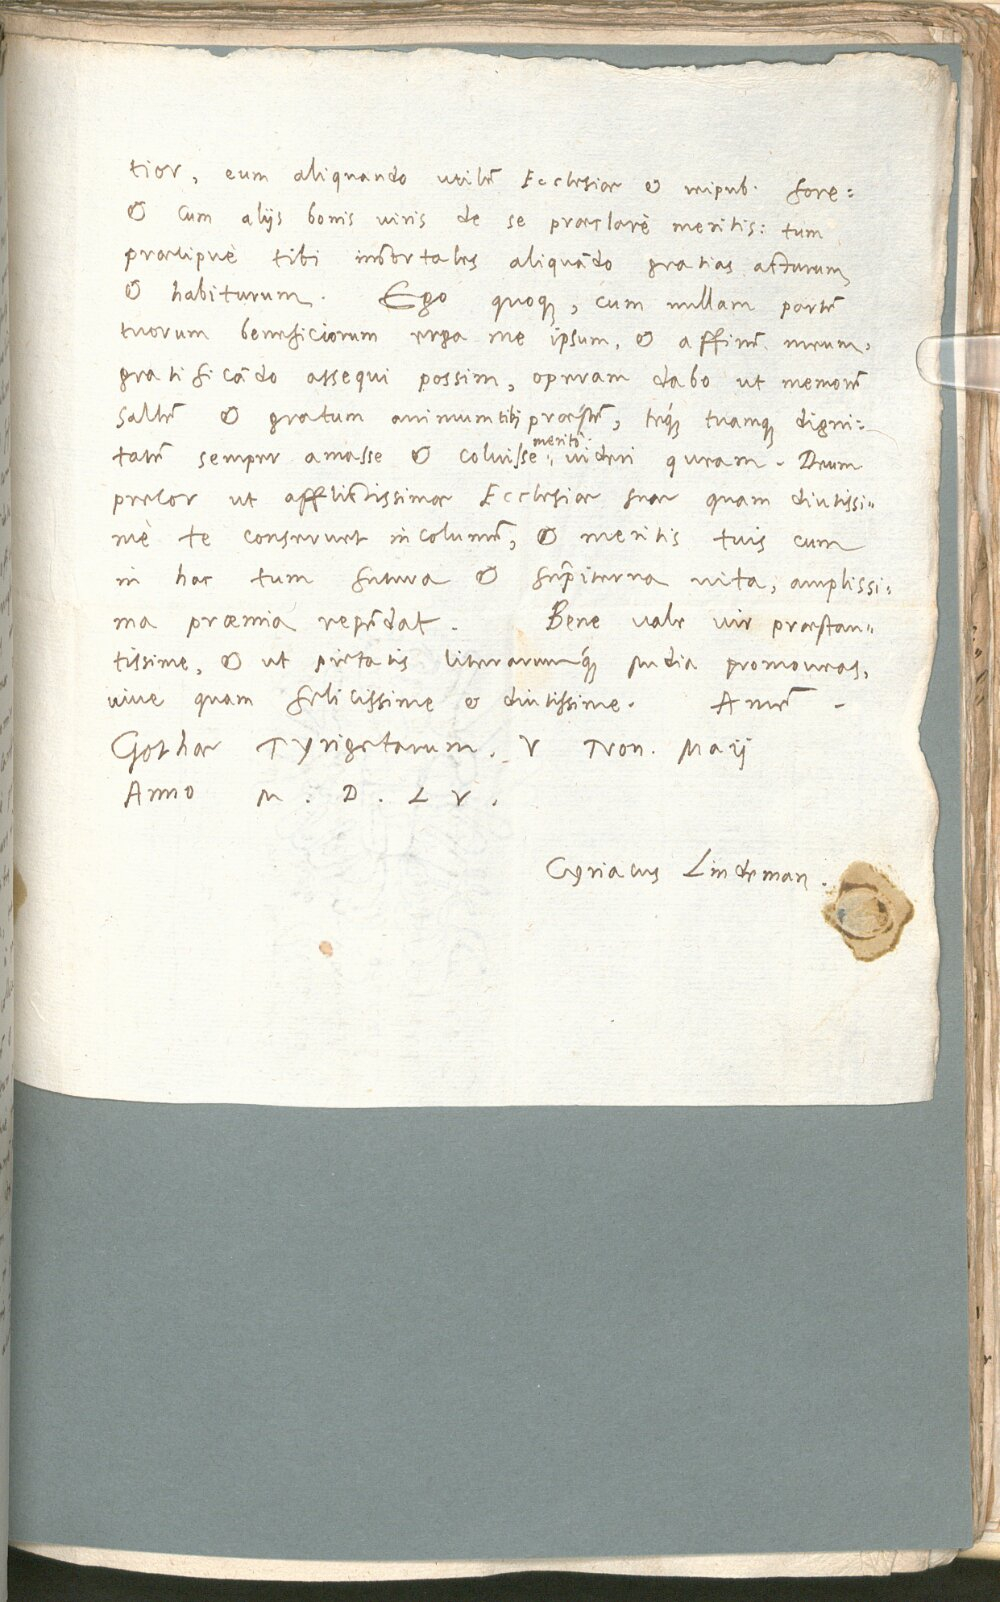 tior, eum aliquando utilē Ecclesiæ & reipub. fore:
& cum alijs bonis viris de se præclarè meritis: tum
præcipuè tibi im̄ortales aliquādo gratias acturum
& habiturum. Ego quoqȝ, cum nullam partē
tuorum beneficiorum erga me ipsum, & affinē meum,
gratificādo assequi possim, operam dabo ut memorē
saltē & gratum animum tibi præstē, teqȝ tuamqȝ digni=
tatē semper amasse & coluisse meritò videri queam. Deum
precor ut afflictissimæ Ecclesiæ suæ quam diutissi=
mè te conservet incolumē, & meritis tuis cum
in hac tum futura & sēpiterna vita, amplissi=
ma præmia repēdat. Bene vale vir præstan=
tissime, & ut pietatis literarumqȝ studia promoveas,
vive quam felicissime & diutissime. Amē.
Gothæ Tyrigetarum. V Non. Maij
Anno M. D. L V.
Cyriacus Lindeman.